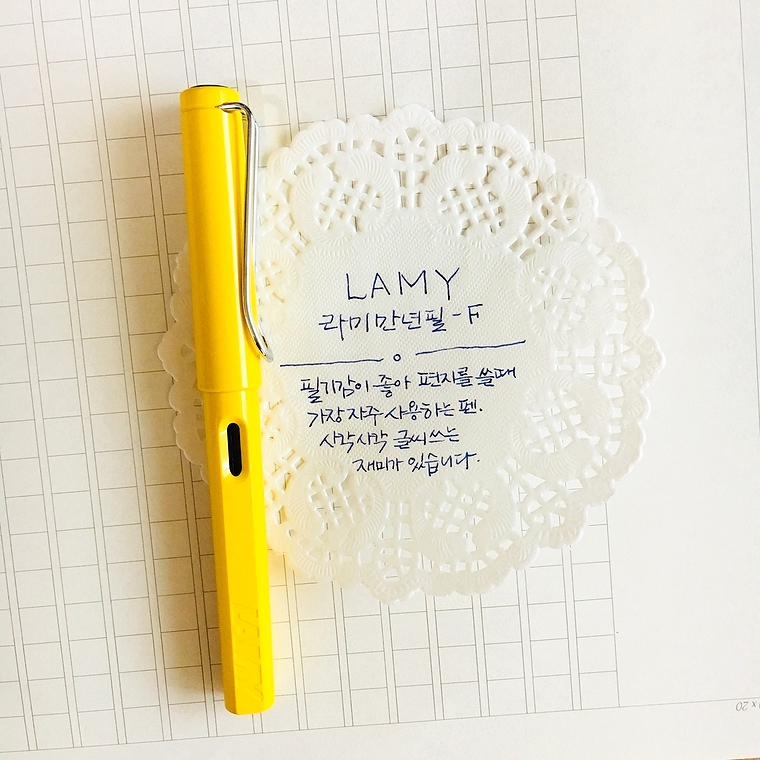 LAMY
라미만년필-F
필기감이 좋아 편지를 쓸때
가장 자주 사용하는 펜.
사각사각 글씨쓰는
재미가 있습니다.
LAMY
x 20